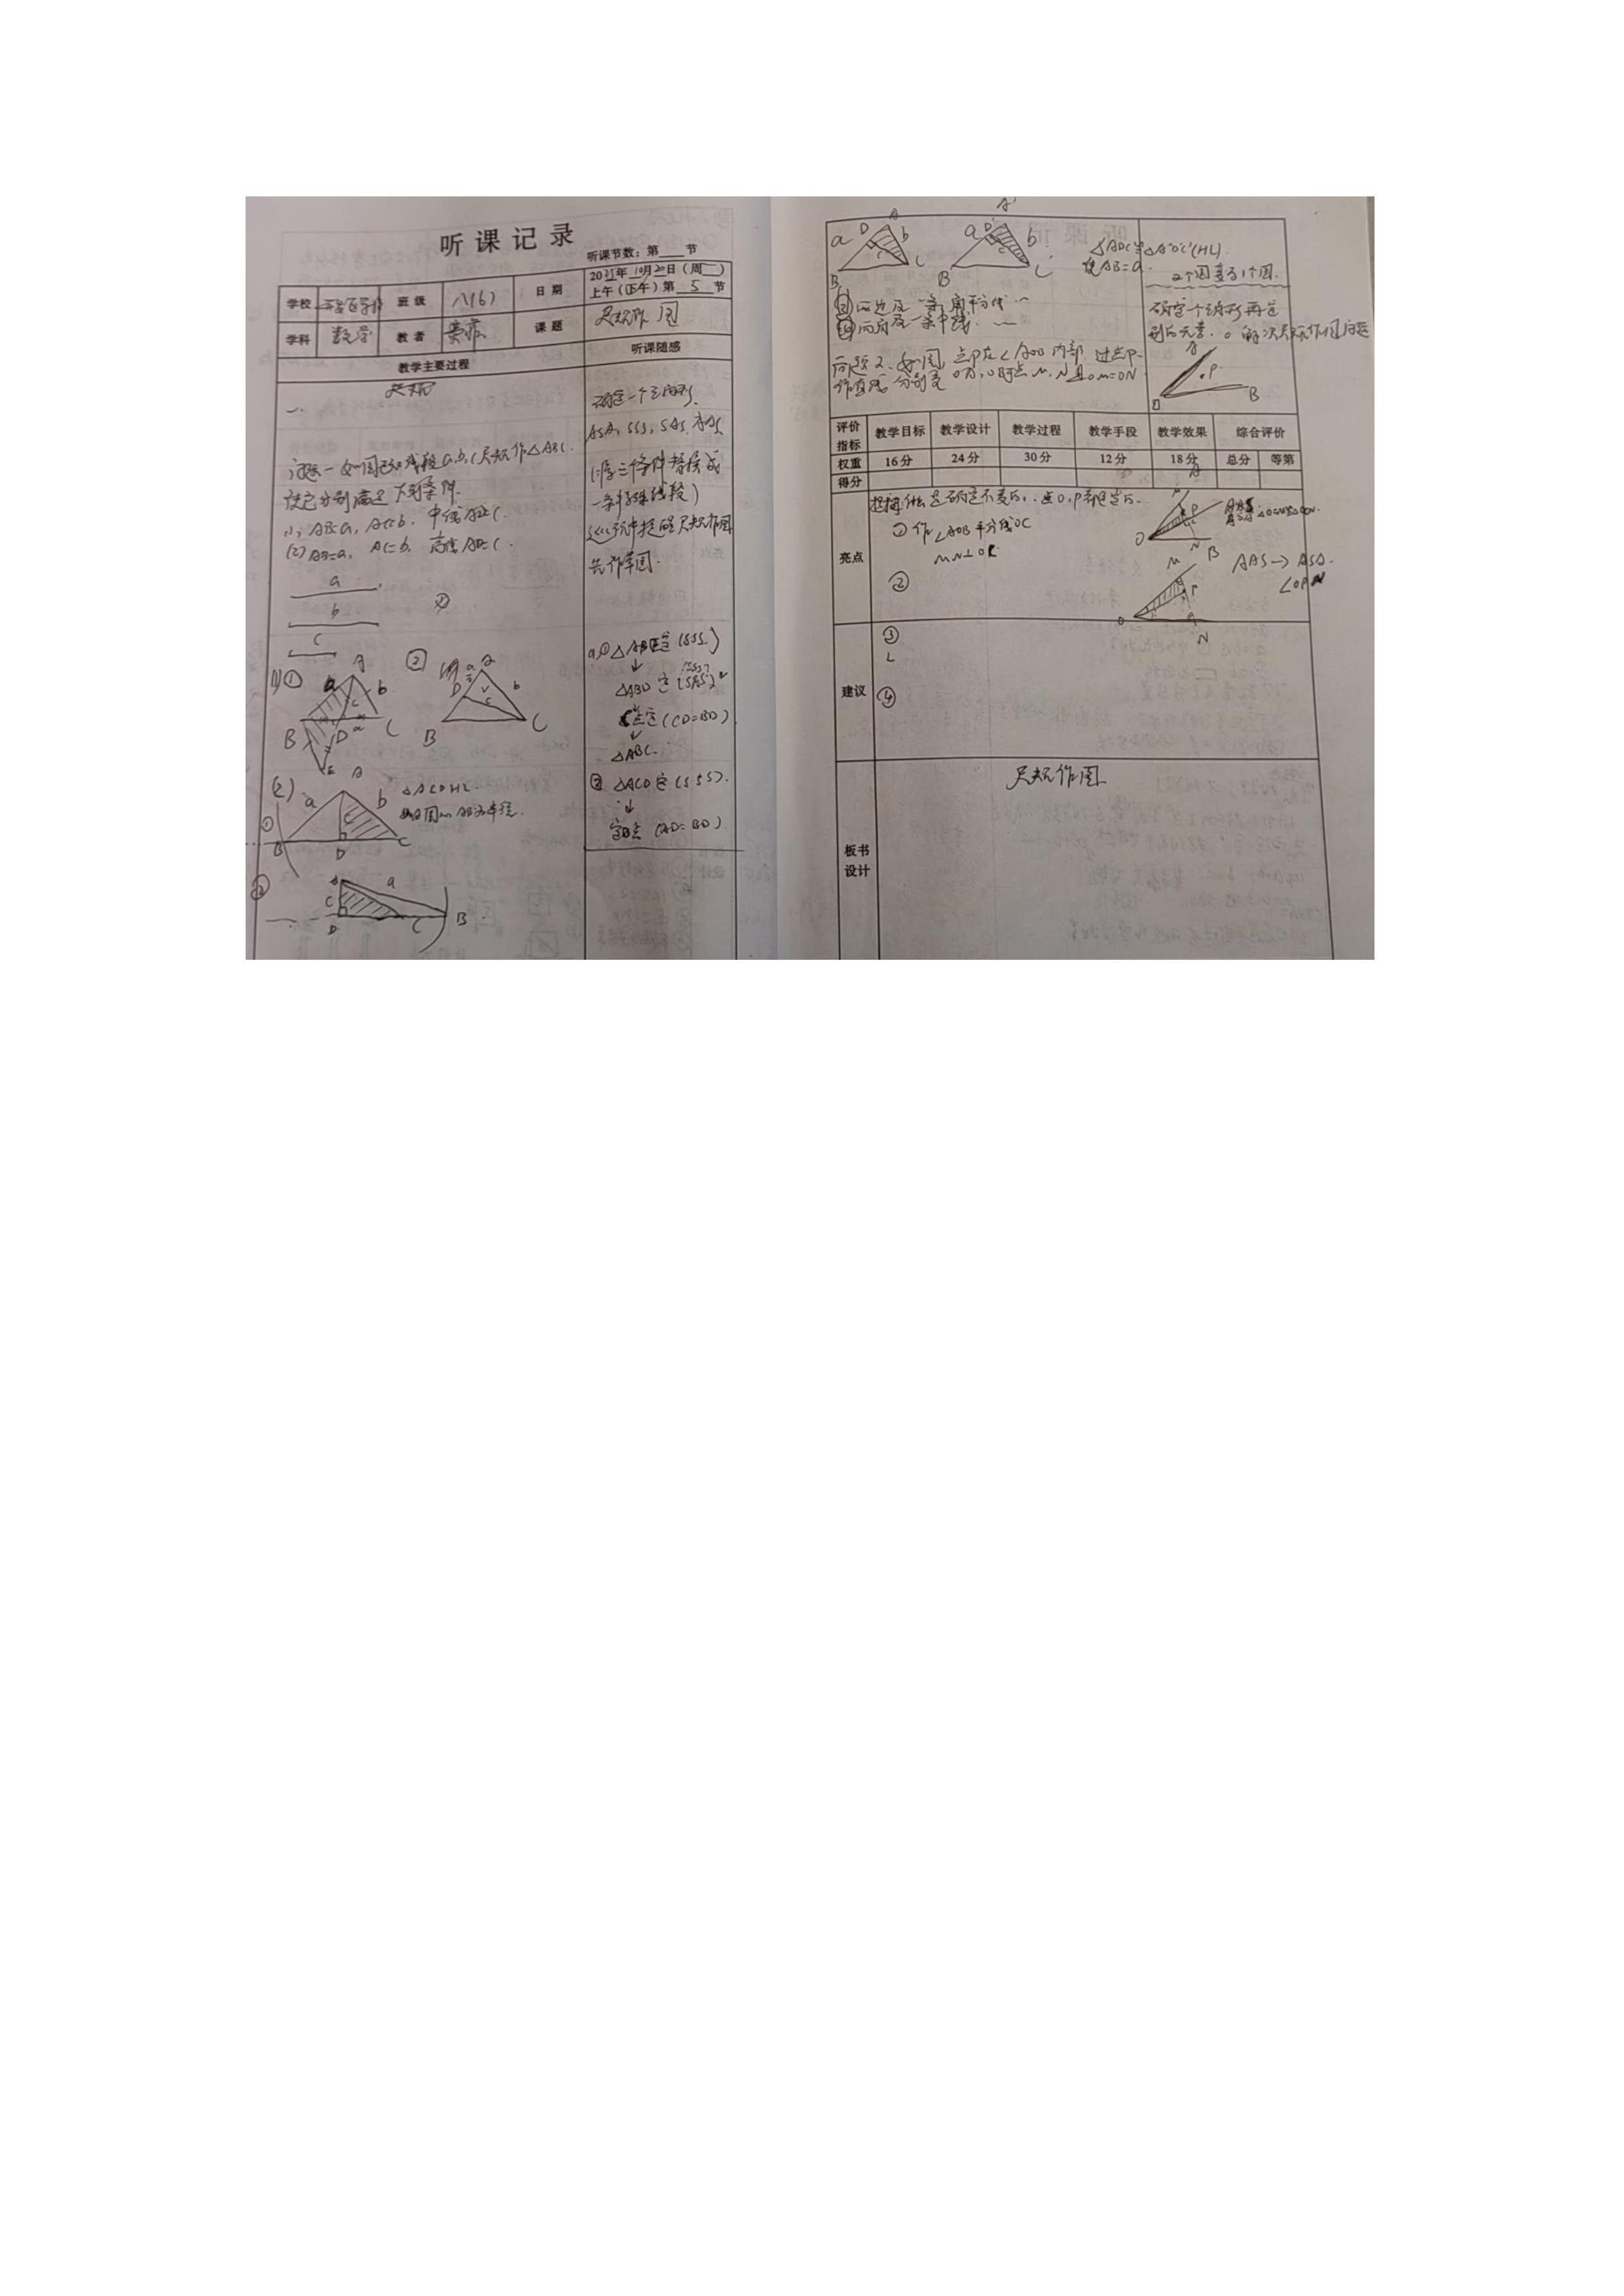 听课记录
听课节数：第 节
学校 班级 八(6) 日期 2021年10月20日（周一）
上午（下午）第 5 节
学科 数学 教者 课题 尺规作图
教学主要过程 听课随感
尺规
一.
问题一 如图已知线段a,b,c尺规作△ABC.
使它分别满足下列条件.
(1) AB=a, AC=b, 中线AD=c.
(2) AB=a, AC=b, 高线AD=c.
a
b
c
(1)① A a b c B D C E
② A a D b c B C
(2) A a b c B D C
△ACD HL
①
② A a c D C B
确定一个三角形.
ASA, SSS, SAS, AAS
(将三个条件替换成
一条特殊线段)
尺规作图
先作草图.
(SSS)
↓
△ABD 定 (SAS)
定 (CD=BD)
↓
△ABC.
② △ACD 定 (SSS).
↓
定B点 (AD=BD)
A D a b c B C
A' D a b c B C
△ADC≌△A'D'C'(HL).
使AB=a.
2个图变为1个图.
③ 两边及一条角平分线
④ 两角及一条中线.
确定一个三角形再
别的元素. 解决尺规作图问题
问题2. 如图, 点P在∠AOB内部 过点P
作直线 分别交OA, OB于点M, N且OM=ON
A P B
评价指标 教学目标 教学设计 教学过程 教学手段 教学效果 综合评价
权重 16分 24分 30分 12分 18分 总分 等第
得分
亮点
是确定不变的. 点O, P都是定的.
① 作∠AOB平分线OC
MN⊥OC
A M P O N B
②
AAS→ASA.
M P O N
建议
③
④
板书设计
尺规作图